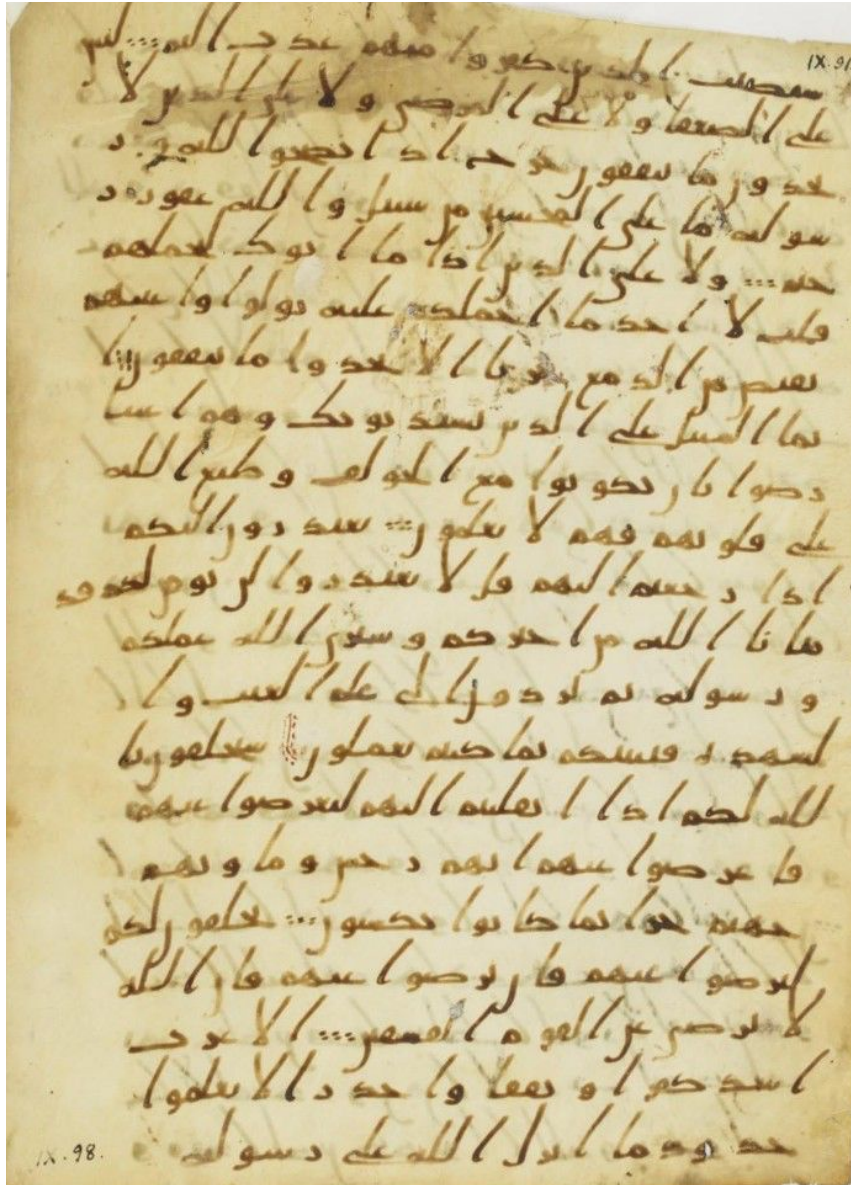 IX.91
سيصيب الذين كفروا منهم عذب اليم ليس
على الضعفا ولا على المرضى ولا على الذين لا
يجدون ما ينفقون حرج اذا نصحوا لله ور
سوله ما على المحسنين من سبيل والله غفور ر
حيم ولا على الذين اذا ما اتوك لتحملهم
قلت لا اجد ما احملكم عليه تولوا واعينهم
تفيض من الدمع حزنا الا يجدوا ما ينفقون ا
نما السبيل على الذين يستذنونك وهم اغنيا
رضوا بان يكونوا مع الخولف وطبع الله
على قلوبهم فهم لا يعلمون يعتذرون اليكم
اذا رجعتم اليهم قل لا تعتذروا لن نومن لكم قد
نبانا الله من اخبركم وسيرى الله عملكم
ورسوله ثم تردون الى علم الغيب وا
لشهدة فينبكم بما كنتم تعملون سيحلفون با
لله لكم اذا انقلبتم اليهم لتعرضوا عنهم
فاعرضوا عنهم انهم رجس وماويهم
جهنم جزا بما كانوا يكسبون يحلفون لكم
لترضوا عنهم فان ترضوا عنهم فان الله
لا يرضى عن القوم الفسقين الاعرب
اشد كفرا ونفقا واجدر الا يعلموا
حدود ما انزل الله على رسوله
IX.98.